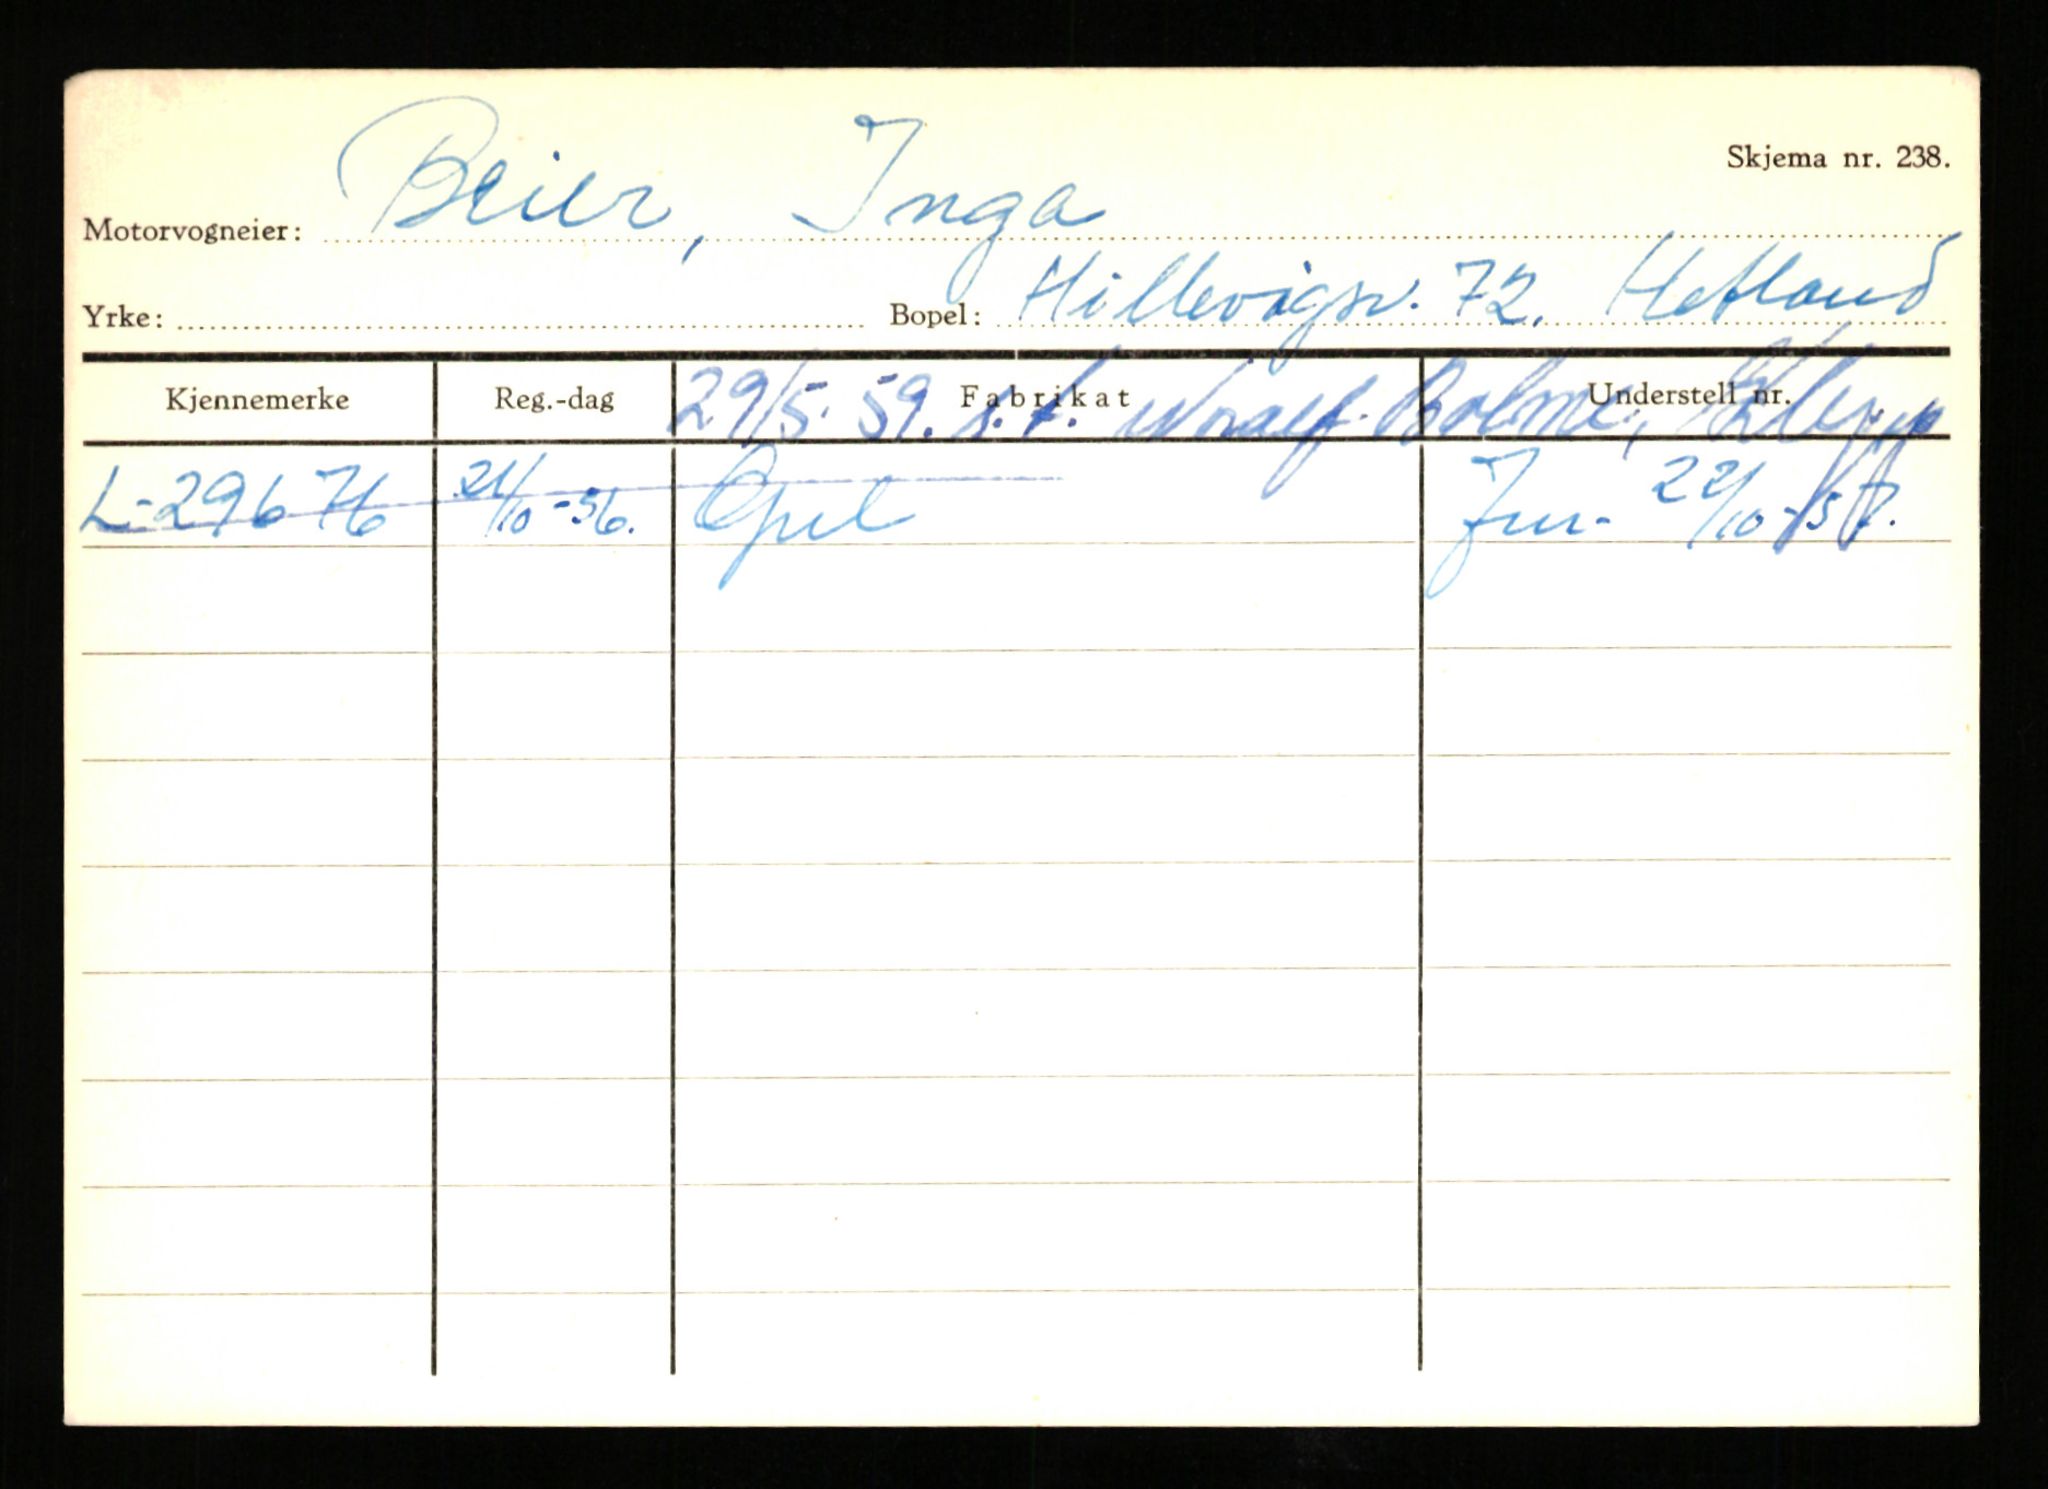 Skjema nr. 238.
Motorvogneier: Beier, Inga
Yrke: Bopel: Hillevågsv. 72. Hetland
Kjennemerke Reg.-dag Fabrikat Understell nr.
29/5. 59. s.t. Bolme, Klepp
L-29676 21/10-56. Opel 22/10-57.